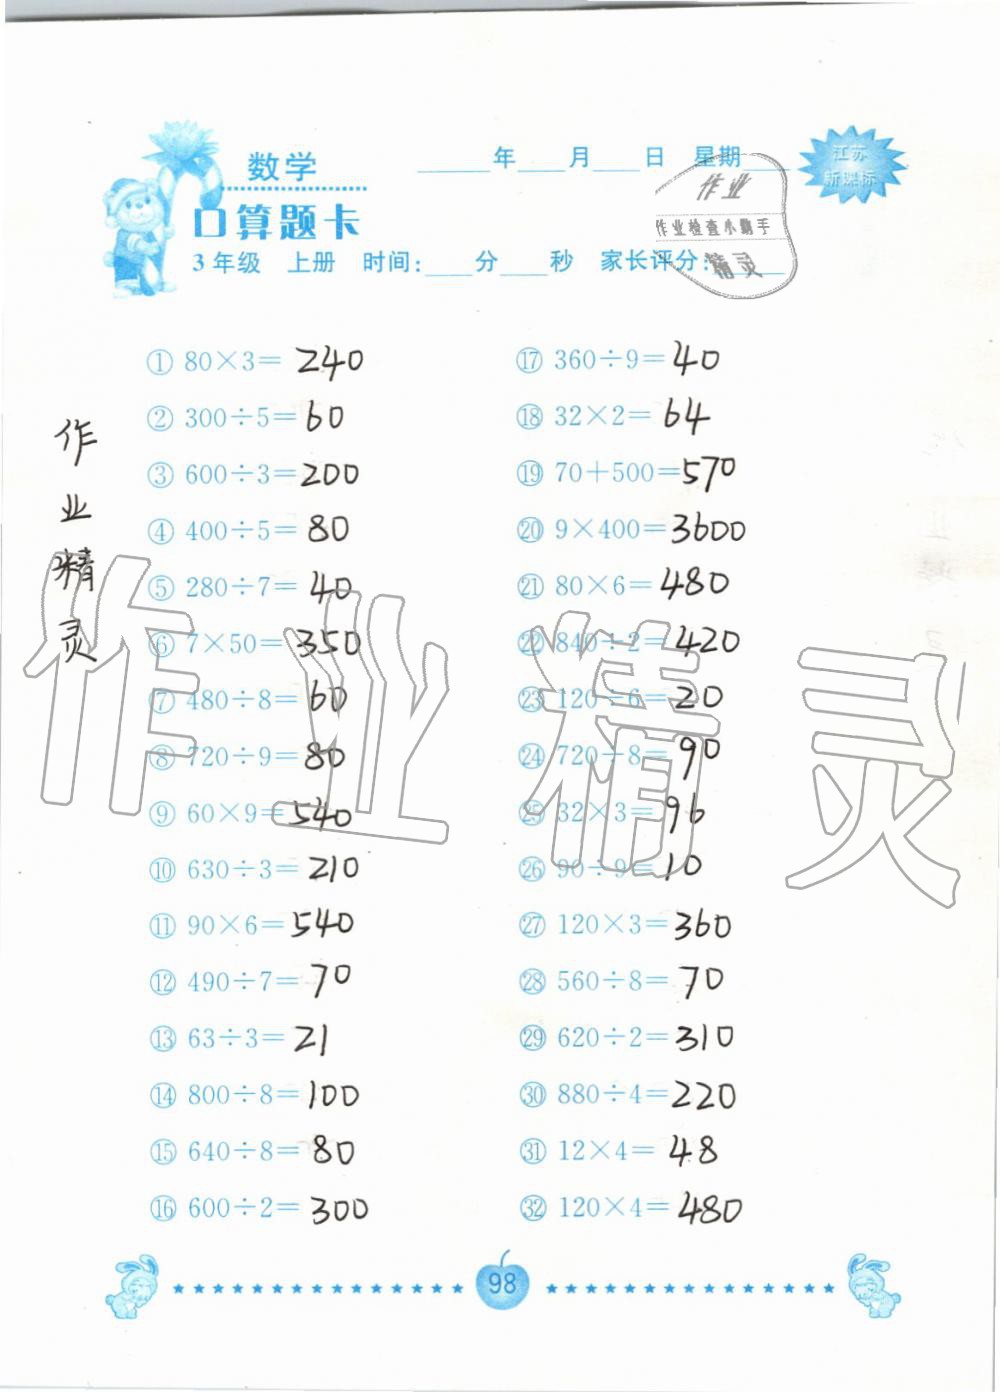 数学
____年____月____日 星期____
江苏
新课标
口算题卡
作业
作业检查小助手
精灵
3年级 上册 时间:____分____秒 家长评分:____
① 80×3=240
② 300÷5=60
③ 600÷3=200
④ 400÷5=80
⑤ 280÷7=40
⑥ 7×50=350
⑦ 480÷8=60
⑧ 720÷9=80
⑨ 60×9=540
⑩ 630÷3=210
⑪ 90×6=540
⑫ 490÷7=70
⑬ 63÷3=21
⑭ 800÷8=100
⑮ 640÷8=80
⑯ 600÷2=300
⑰ 360÷9=40
⑱ 32×2=64
⑲ 70+500=570
⑳ 9×400=3600
㉑ 80×6=480
㉒ 840÷2=420
㉓ 120÷6=20
㉔ 720÷8=90
㉕ 32×3=96
㉖ 90÷9=10
㉗ 120×3=360
㉘ 560÷8=70
㉙ 620÷2=310
㉚ 880÷4=220
㉛ 12×4=48
㉜ 120×4=480
作业精灵
作业精灵
98